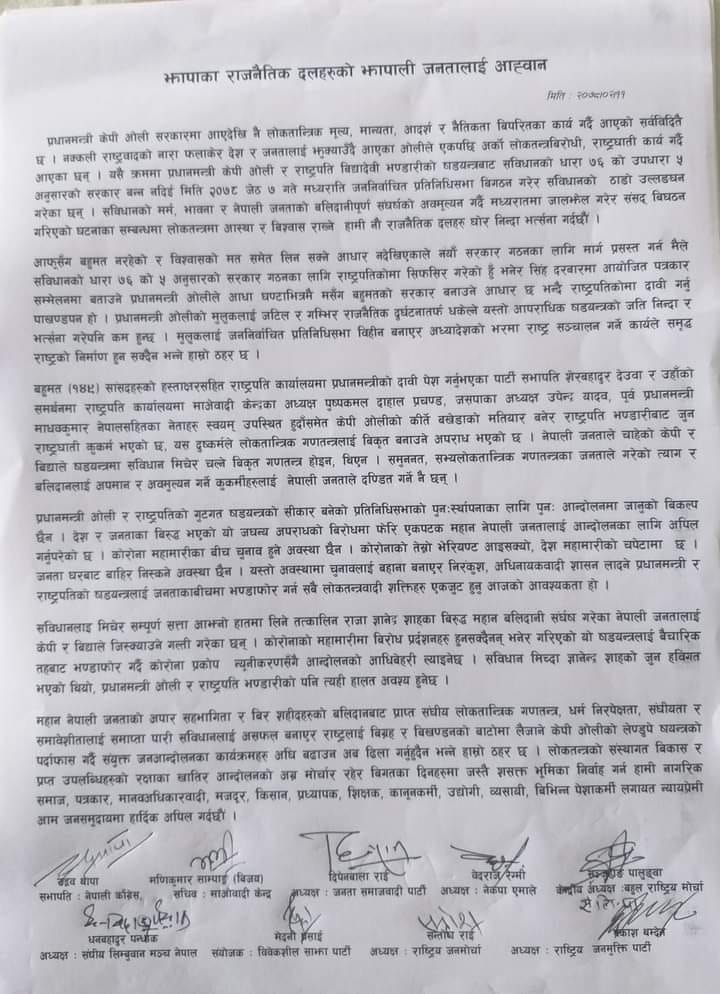 झापाका राजनैतिक दलहरुको झापाली जनतालाई आह्वान
मिति : २०७८।०२।११
प्रधानमन्त्री केपी ओली सरकारमा आएदेखि नै लोकतान्त्रिक मूल्य, मान्यता, आदर्श र नैतिकता बिपरितका कार्य गर्दै आएको सर्वविदितै
छ । नक्कली राष्ट्रवादको नारा फलाकेर देश र जनतालाई झुक्याउँदै आएका ओलीले एकपछि अर्को लोकतन्त्रबिरोधी, राष्ट्रघाती कार्य गर्दै
आएका छन् । यसै क्रममा प्रधानमन्त्री केपी ओली र राष्ट्रपति बिद्यादेवी भण्डारीको षडयन्त्रबाट संविधानको धारा ७६ को उपधारा ५
अनुसारको सरकार बन्न नदिई मिति २०७८ जेठ ७ गते मध्यराति जननिर्वाचित प्रतिनिधिसभा बिगठन गरेर संविधानको ठाडो उल्लङ्घन
गरेका छन् । संविधानको मर्म, भावना र नेपाली जनताको बलिदानीपूर्ण संघर्षको अवमुल्यन गर्दै मध्यरातमा जालझेल गरेर संसद् बिघठन
गरिएको घटनाका सम्बन्धमा लोकतन्त्रमा आस्था र बिश्वास राख्ने हामी नौ राजनैतिक दलहरु घोर निन्दा भर्त्सना गर्दछौं ।
आफूसँग बहुमत नरहेको र विश्वासको मत समेत लिन सक्ने आधार नदेखिएकाले नयाँ सरकार गठनका लागि मार्ग प्रसस्त गर्न मैले
संविधानको धारा ७६ को ५ अनुसारको सरकार गठनका लागि राष्ट्रपतिकोमा सिफसिर गरेको हुँ भनेर सिंह दरबारमा आयोजित पत्रकार
सम्मेलनमा बताउने प्रधानमन्त्री ओलीले आधा घण्टाभित्रमै मसँग बहुमतको सरकार बनाउने आधार छ भन्दै राष्ट्रपतिकोमा दावी गर्नु
पाखण्डपन हो । प्रधानमन्त्री ओलीको मुलुकलाई जटिल र गम्भिर राजनैतिक दुर्घटनातर्फ धकेल्ने यस्तो आपराधिक षडयन्त्रको जति निन्दा र
भर्त्सना गरेपनि कम हुन्छ । मुलुकलाई जननिर्वाचित प्रतिनिधिसभा विहीन बनाएर अध्यादेशको भरमा राष्ट्र सञ्चालन गर्ने कार्यले समृद्ध
राष्ट्रको निर्माण हुन सक्दैन भन्ने हाम्रो ठहर छ ।
बहुमत (१४९) सांसदहरुको हस्ताक्षरसहित राष्ट्रपति कार्यालयमा प्रधानमन्त्रीको दावी पेश गर्नुभएका पार्टी सभापति शेरबहादुर देउवा र उहाँको
समर्थनमा राष्ट्रपति कार्यालयमा माओवादी केन्द्रका अध्यक्ष पुष्पकमल दाहाल प्रचण्ड, जसपाका अध्यक्ष उपेन्द्र यादव, पूर्व प्रधानमन्त्री
माधवकुमार नेपालसहितका नेताहरु स्वयम् उपस्थित हुदाँसमेत केपी ओलीको कीर्ते बखेडाको मतियार बनेर राष्ट्रपति भण्डारीबाट जुन
राष्ट्रघाती कुकर्म भएको छ, यस दुष्कर्मले लोकतान्त्रिक गणतन्त्रलाई बिकृत बनाउने अपराध भएको छ । नेपाली जनताले चाहेको केपी र
बिद्याले षडयन्त्रमा संविधान मिचेर चल्ने बिकृत गणतन्त्र होइन, थिएन । समुननत, सभ्यलोकतान्त्रिक गणतन्त्रका जनताले गरेको त्याग र
बलिदानलाई अपमान र अवमुल्यन गर्ने कुकर्मीहरुलाई नेपाली जनताले दण्डित गर्ने नै छन् ।
प्रधानमन्त्री ओली र राष्ट्रपतिको गुटगत षडयन्त्रको सीकार बनेको प्रतिनिधिसभाको पुनःर्स्थापनाका लागि पुनः आन्दोलनमा जानुको बिकल्प
छैन । देश र जनताका बिरुद्ध भएको यो जघन्य अपराधको बिरोधमा फेरि एकपटक महान नेपाली जनतालाई आन्दोलनका लागि अपिल
गर्नुपरेको छ । कोरोना महामारीका बीच चुनाव हुने अवस्था छैन । कोरोनाको तेस्रो भेरियण्ट आइसक्यो, देश महामारीको चपेटामा छ ।
जनता घरबाट बाहिर निस्कने अवस्था छैन । यस्तो अवस्थामा चुनावलाई बहाना बनाएर निरंकुश, अधिनायकवादी शासन लादने प्रधानमन्त्री र
राष्ट्रपतिको षडयन्त्रलाई जनताकाबीचमा भण्डाफोर गर्न सबै लोकतन्त्रवादी शक्तिहरु एकजुट हुनु आजको आवश्यकता हो ।
संविधानलाइ मिचेर सम्पूर्ण सत्ता आफ्नो हातमा लिने तत्कालिन राजा ज्ञानेन्द्र शाहका बिरुद्ध महान बलिदानी संर्घष गरेका नेपाली जनतालाई
केपी र बिद्याले जिस्क्याउने गल्ती गरेका छन् । कोरोनाको महामारीमा बिरोध प्रर्दशनहरु हुनसक्दैनन् भनेर गरिएको यो षडयन्त्रलाई बैचारिक
तहबाट भण्डाफोर गर्दै कोरोना प्रकोप न्यूनीकरणसँगै आन्दोलनको आधिबेहरी ल्याइनेछ । संविधान मिच्दा ज्ञानेन्द्र शाहको जुन हविगत
भएको थियो, प्रधानमन्त्री ओली र राष्ट्रपति भण्डारीको पनि त्यही हालत अवश्य हुनेछ ।
महान नेपाली जनताको अपार सहभागिता र बिर शहीदहरुको बलिदानबाट प्राप्त संघीय लोकतान्त्रिक गणतन्त्र, धर्म निरपेक्षता, संघीयता र
समावेशीतालाई समाप्ता पारी संविधानलाई असफल बनाएर राष्ट्रलाई बिग्रह र बिखण्डनको बाटोमा लैजाने केपी ओलीको लेण्डुपे षयन्त्रको
पर्दाफास गर्दै संयुक्त जनआन्दोलनका कार्यक्रमहरु अघि बढाउन अब ढिला गर्नुहुदैन भन्ने हाम्रो ठहर छ । लोकतन्त्रको संस्थागत बिकास र
प्राप्त उपलब्धिहरुको रक्षाका खातिर आन्दोलनको अग्र मोर्चार रहेर बिगतका दिनहरुमा जस्तै शसक्त भूमिका निर्वाह गर्न हामी नागरिक
समाज, पत्रकार, मानवअधिकारवादी, मजदूर, किसान, प्रध्यापक, शिक्षक, कानूनकर्मी, उद्योगी, व्यसायी, बिभिन्न पेशाकर्मी लगायत न्यायप्रेमी
आम जनसमुदायमा हार्दिक अपिल गर्दछौं ।
उद्धव थापा मणिकुमार साम्पाङ (बिजय) दिपेनबाला राई वेदराज रेग्मी पालुङ्वा
सभापति : नेपाली काँग्रेस, सचिव : माओवादी केन्द्र अध्यक्ष : जनता समाजवादी पार्टी अध्यक्ष : नेकपा एमाले केन्द्रीय अध्यक्ष : बहुल राष्ट्रिय मोर्चा
धनबहादुर पन्धाक मेदनी प्रसाई सन्तोष राई प्रकाश बम्देव
अध्यक्ष : संघीय लिम्बुवान मञ्च नेपाल संयोजक : विवेकशील साझा पार्टी अध्यक्ष : राष्ट्रिय जनमोर्चा अध्यक्ष : राष्ट्रिय जनमुक्ति पार्टी